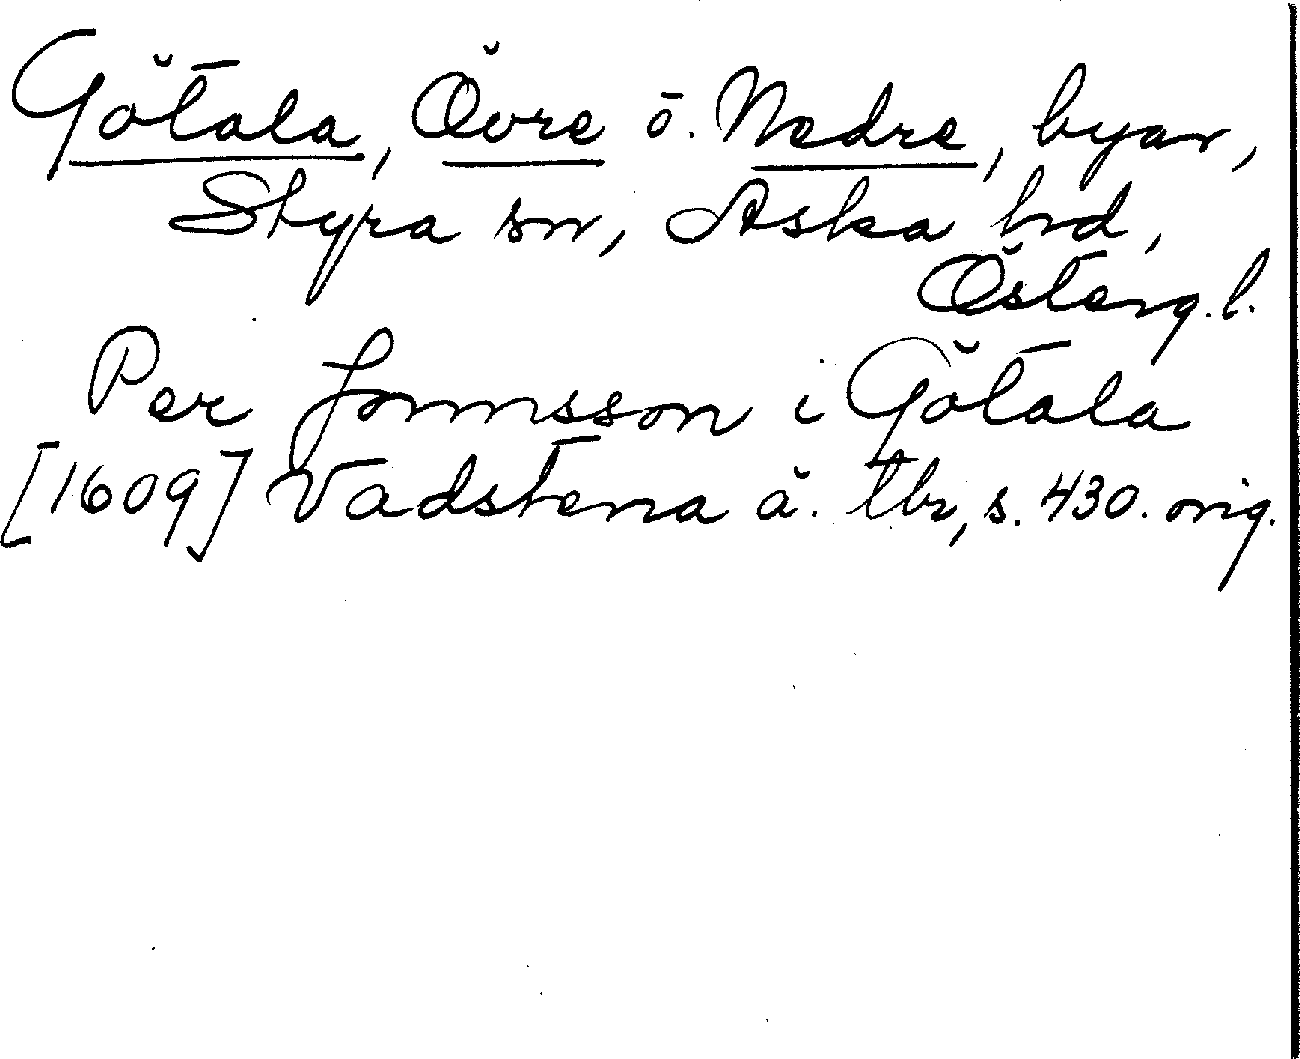 Götala, Övre o. Nedre, byar,
Styra sn, Aska hd,
Österg. l.
Per Jonnsson i Götala
[1609] Vadstena ä. tbr, s. 430. orig.